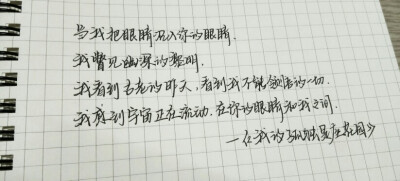 当我把眼睛沉入你的眼睛
我瞥见幽深的黎明
我看到古老的昨天，看到我不能领悟的一切
我感到宇宙正在流动，在你的眼睛和我之间．
—《我的孤独是座花园》